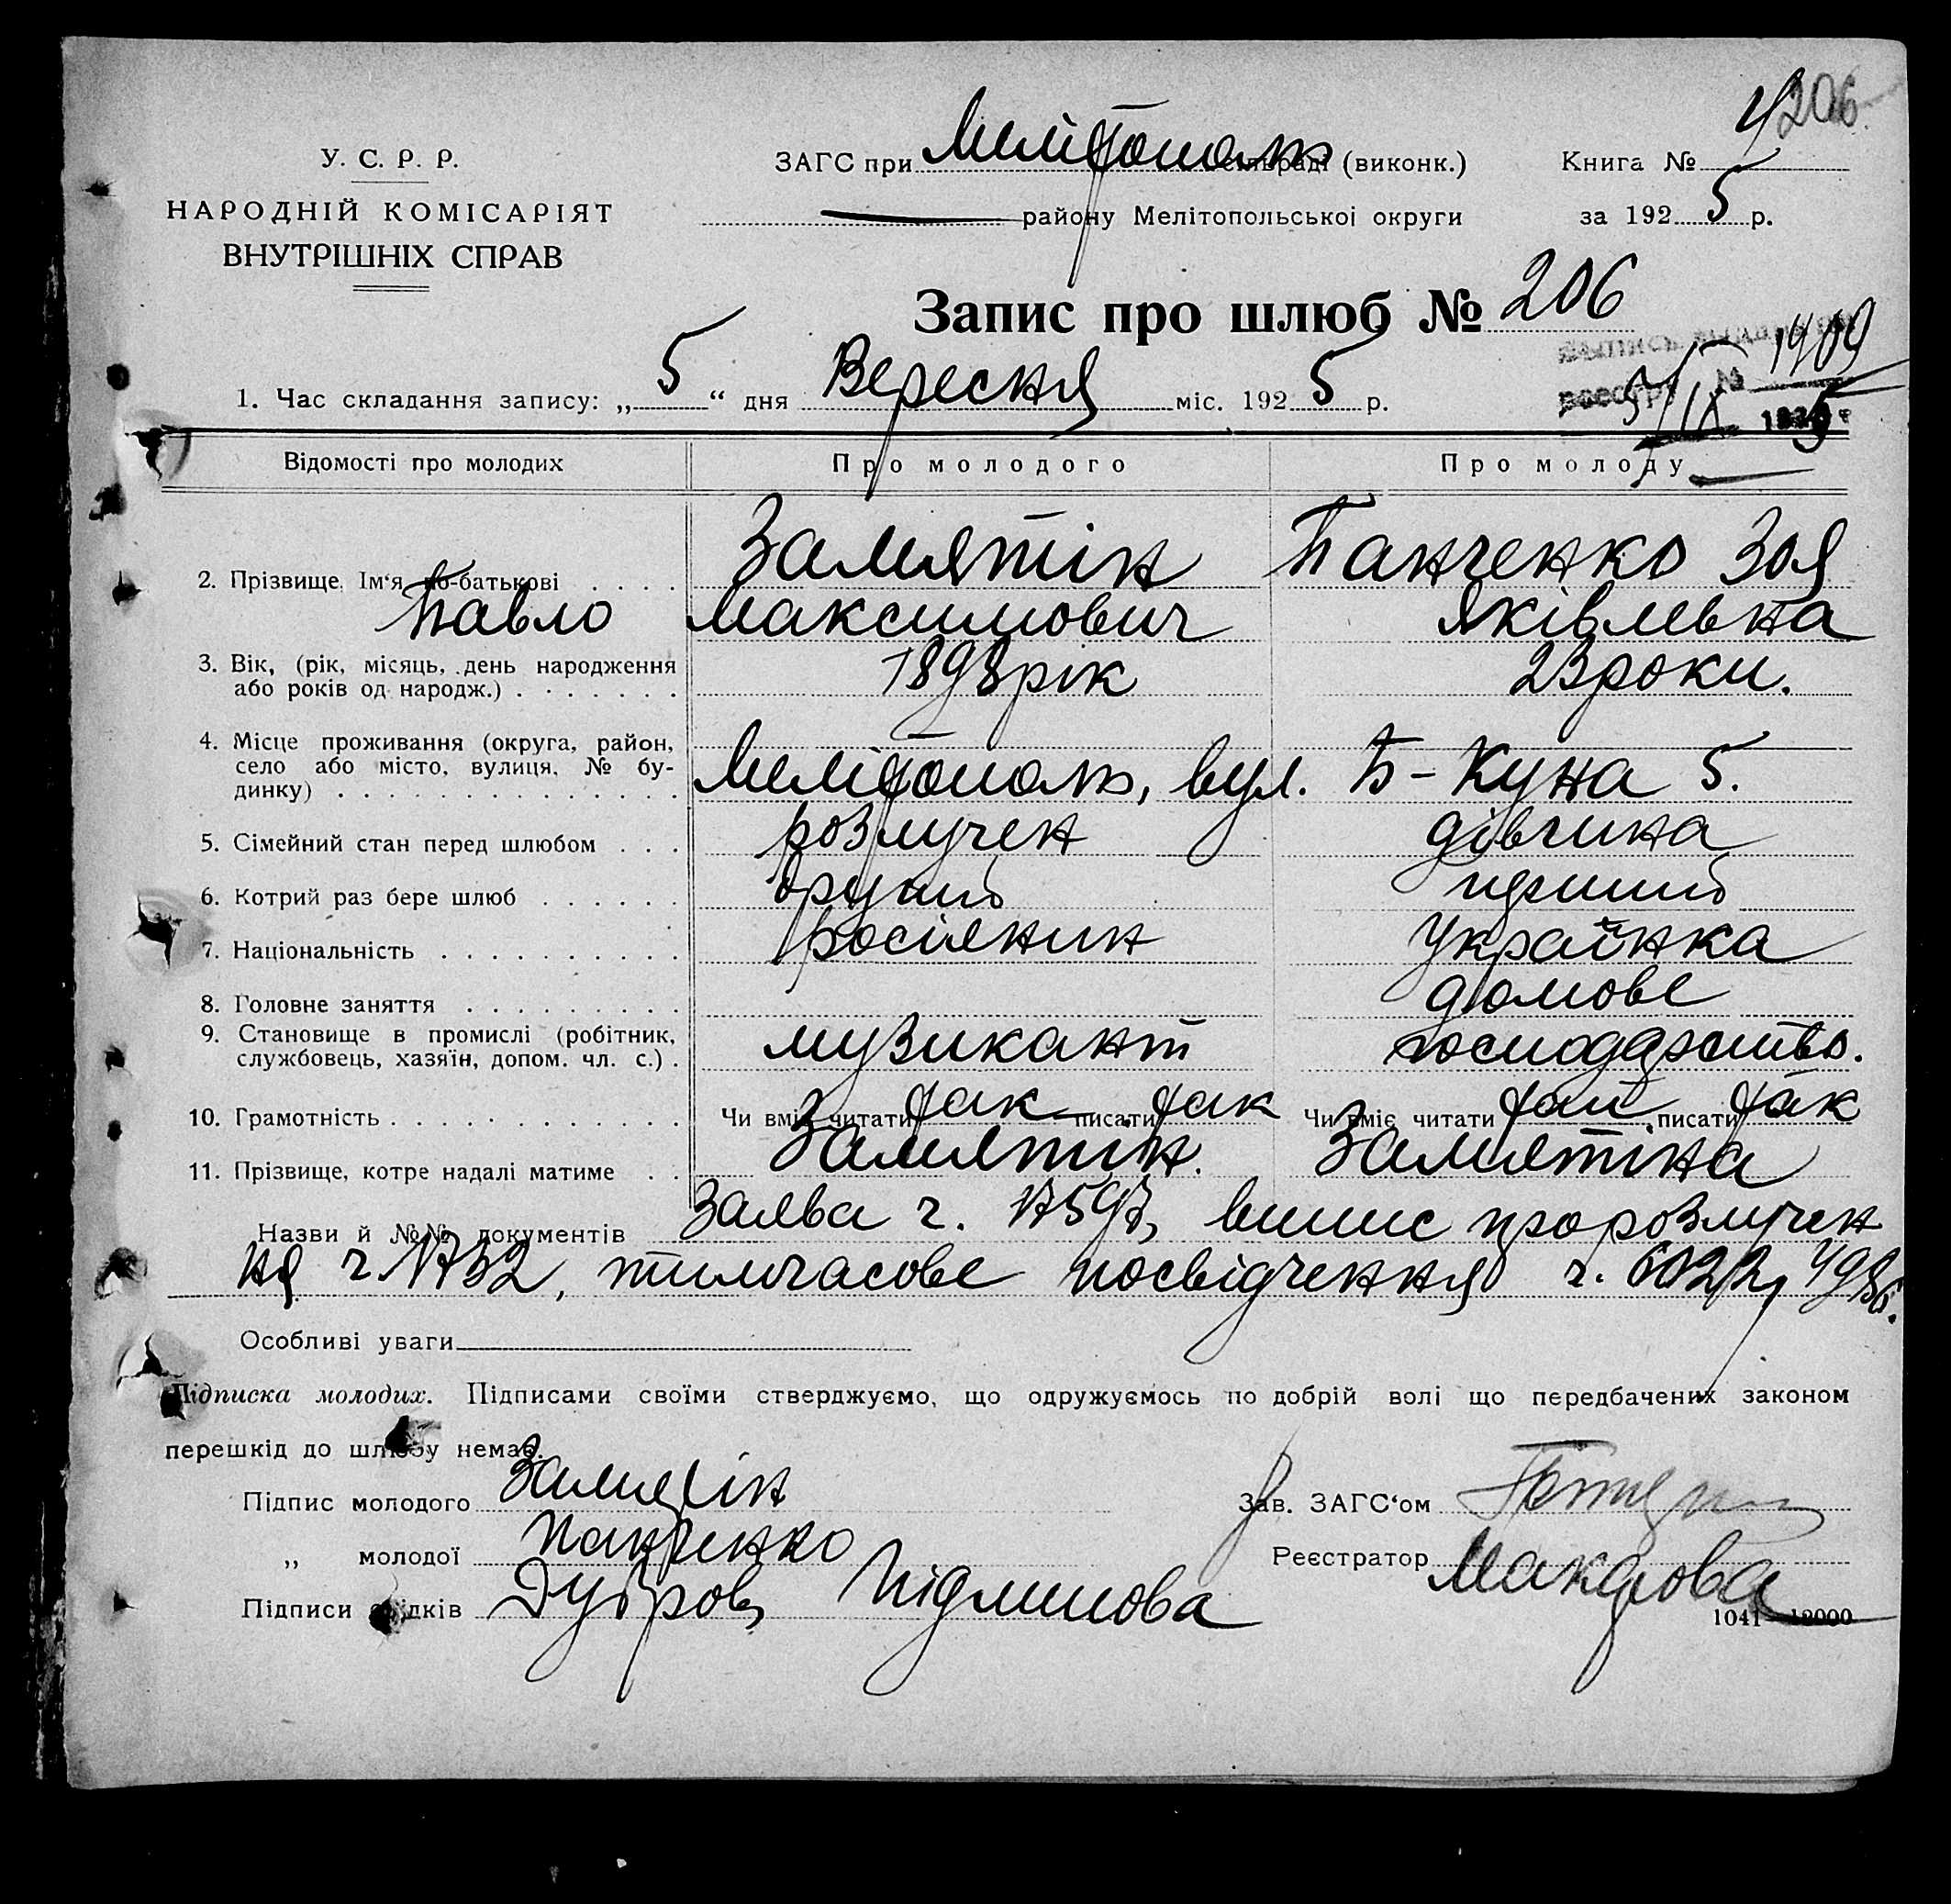 206
У. С. Р. Р.
НАРОДНІЙ КОМІСАРІЯТ
ВНУТРІШНІХ СПРАВ
ЗАГС при Мелітополь сільраді (виконк.) Книга № 4
району Мелітопольської округи за 1925 р.
Запис про шлюб № 206
1. Час складання запису: „5“ дня Вересня міс. 1925 р.
№ 1409
5/IX 1925 г
Відомості про молодих Про молодого Про молоду
2. Прізвище, Ім‘я по-батькові . . . . Замятін Панченко Зоя
Павло Максимович Яківлевна
3. Вік, (рік, місяць, день народження
або років од народж.) . . . . . . . 1898 рік 23 роки.
4. Місце проживання (округа, район,
село або місто, вулиця, № бу-
динку) . . . . . . . . . . . . . . Мелітополь, вул. Б-Куна 5.
5. Сімейний стан перед шлюбом . . . розлучен дівчина
6. Котрий раз бере шлюб . . . . . . другий перший
7. Національність . . . . . . . . . . росіянин Українка
8. Головне заняття . . . . . . . . . домове
9. Становище в промислі (робітник,
службовець, хазяїн, допом. чл. с.) . музикант господарство.
10. Грамотність . . . . . . . . . . . . Чи вміє читати так писати так Чи вміє читати так писати так
11. Прізвище, котре надалі матиме . . Замятин. Замятіна
Назви й №№ документів Заява ч. випис про розлучен
ня ч 1732, тимчасове посвідчення ч. 6022,
Особливі уваги
Підписка молодих. Підписами своїми стверджуємо, що одружуємось по добрій волі що передбачених законом
перешкід до шлюбу немає.
Підпис молодого Замятін Зав. ЗАГС‘ом
„ молодої Панченко Реєстратор Макарова
Підписи свідків
1041—12000